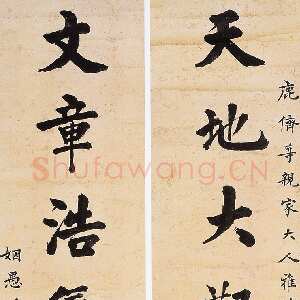 鹿儕尊親家大人雅
天地大
文章浩
姻愚
Shufawang.CN